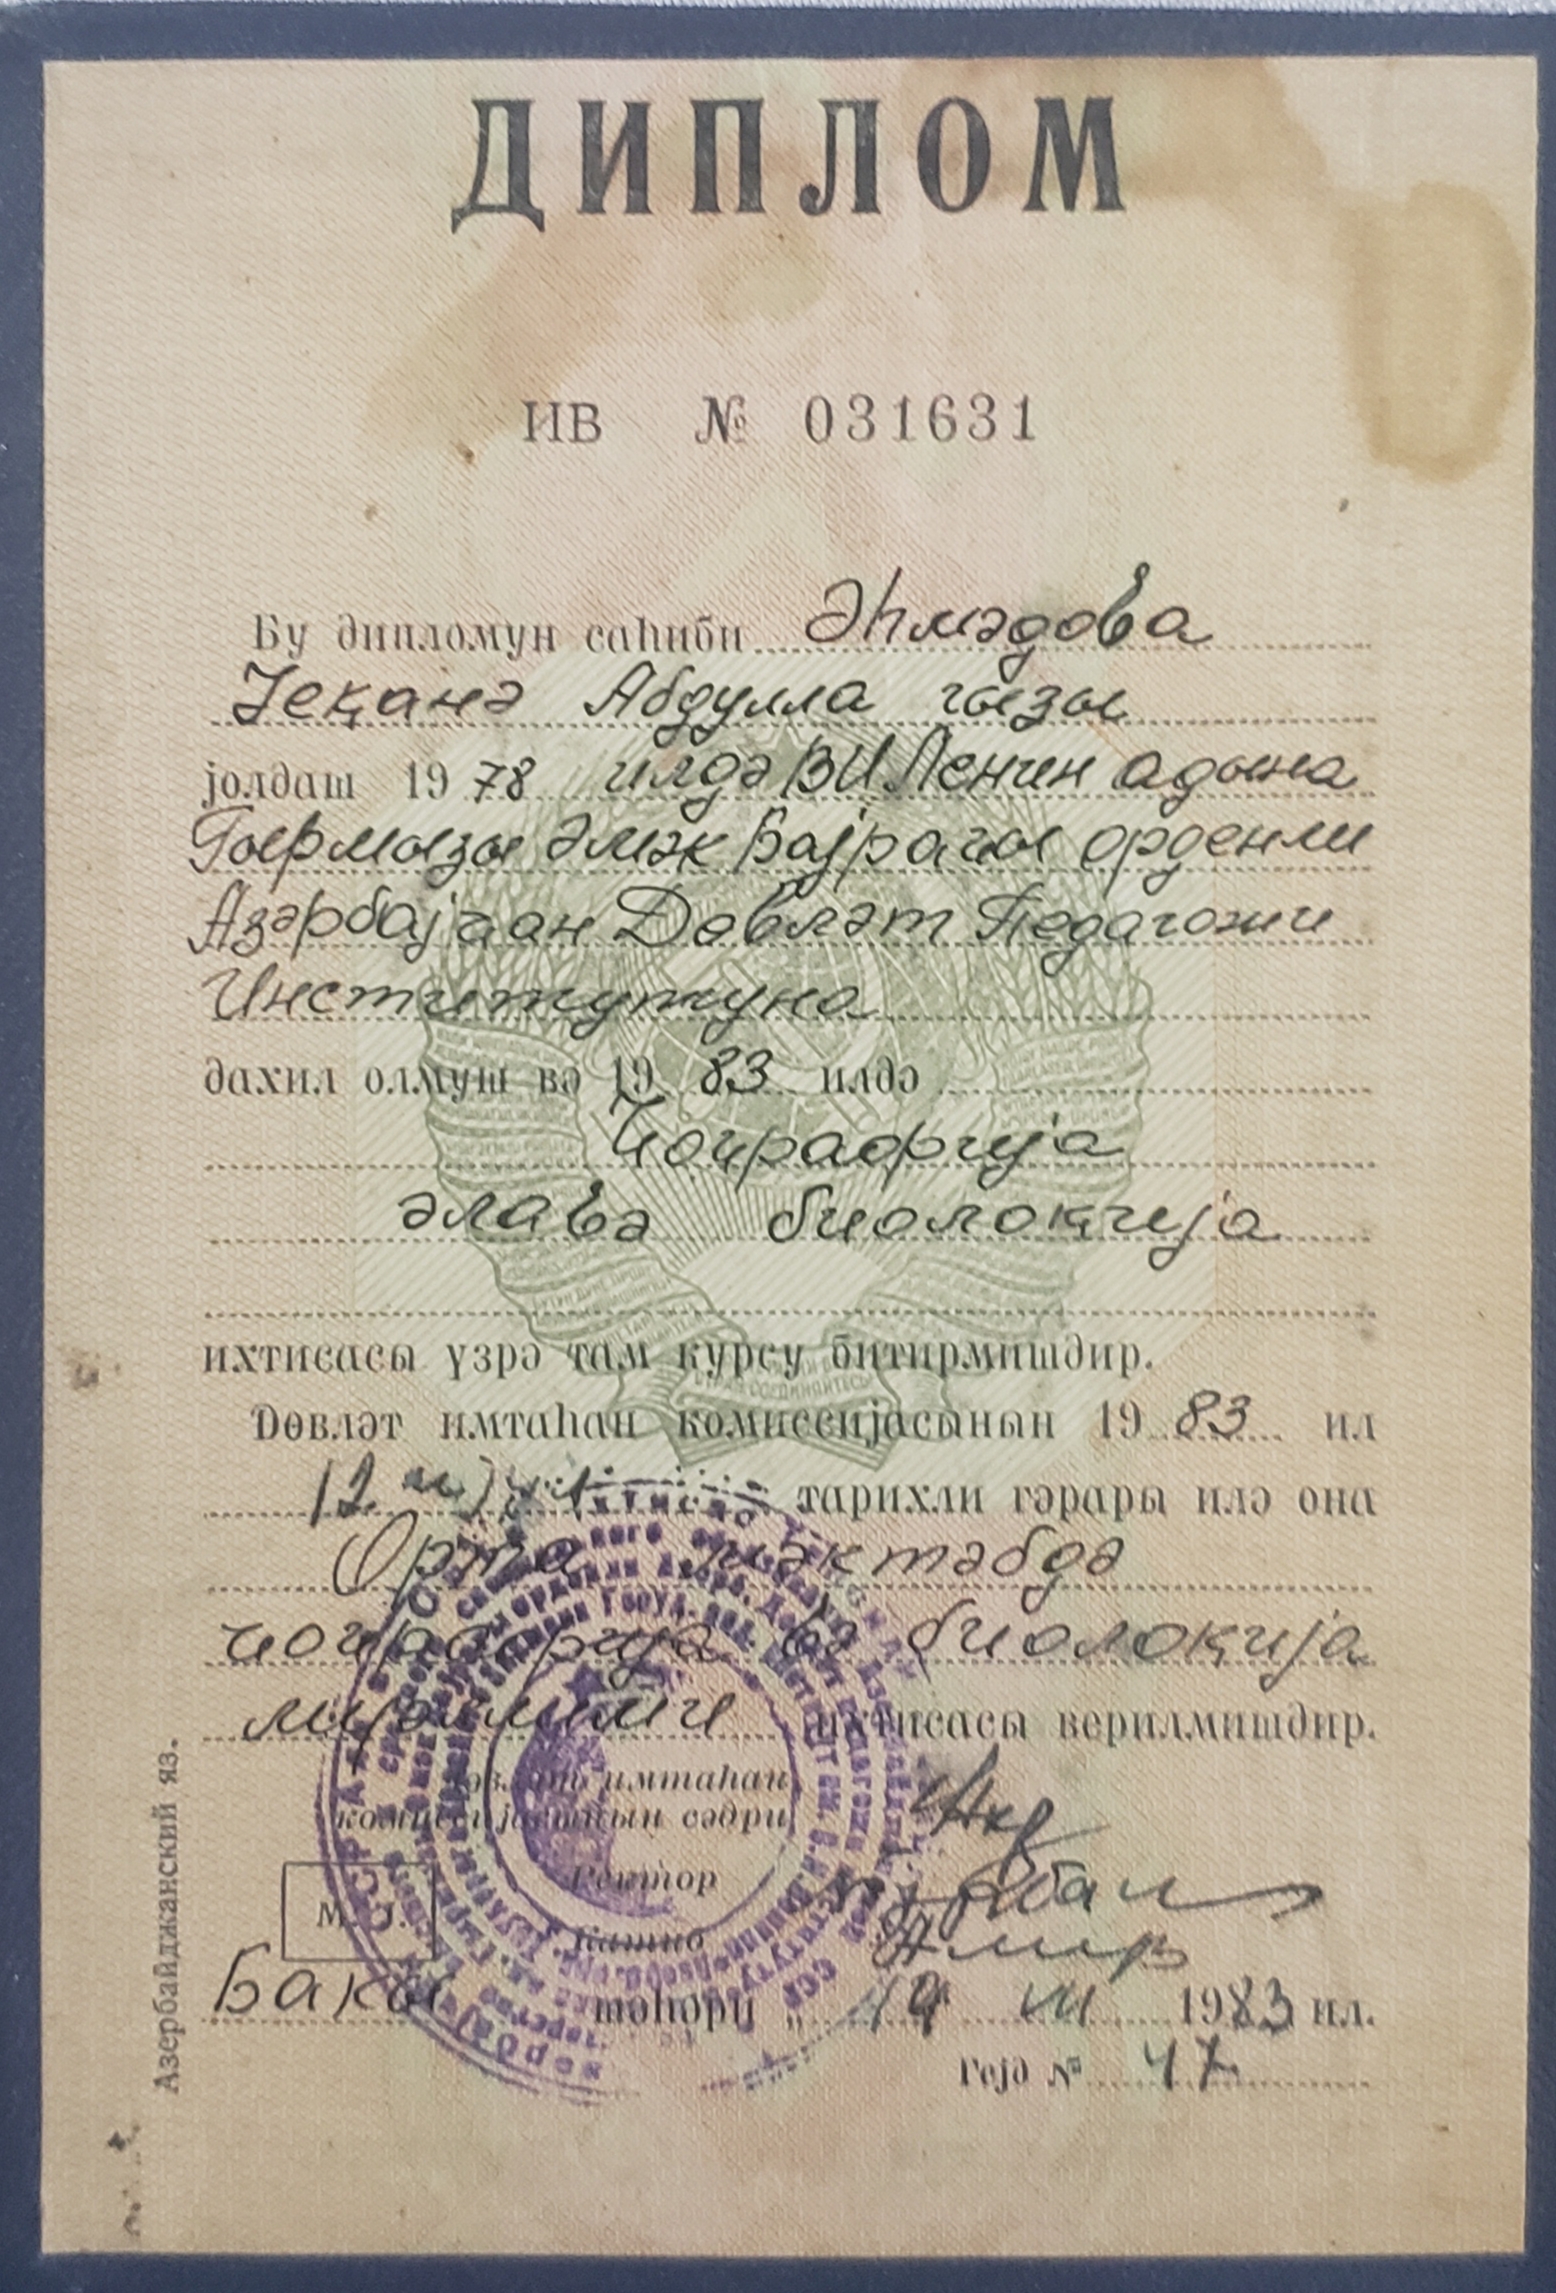 ДИПЛОМ
ИВ № 031631
Бу дипломун саһиби Әһмәдова
Јеҝанә Абдулла гызы
јолдаш 1978 илдә В И Ленин адына
Гырмызы Әмәк Бајрағы орденли
Азәрбајҹан Дөвләт Педагожи
Институтуна
дахил олмуш вә 1983 илдә
Ҹоғрафија
әлавә биолоҝија
ихтисасы үзрә там курсу битирмишдир.
Дөвләт имтаһан комиссијасынын 1983 ил
12 ијул тарихли гәрары илә она
Орта мәктәбдә
ҹоғрафија вә биолоҝија
мүәллими ихтисасы верилмишдир.
Дөвләт имтаһан
комиссијасынын сәдри
Ректор
Катиб
М. Ј.
Бакы шәһәри „ 19 VII 1983 ил.
Гејд № 47
Азербайджанский яз.